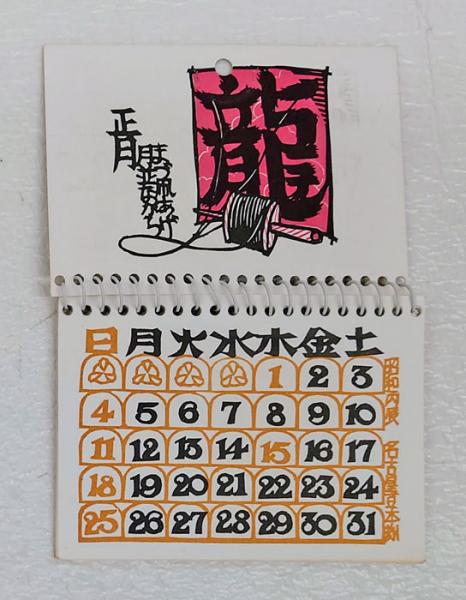 龍
正月
まづ凧あげ
月並ながら
日 月 火 水 木 金 土
1 2 3
4 5 6 7 8 9 10
11 12 13 14 15 16 17
18 19 20 21 22 23 24
25 26 27 28 29 30 31
昭和丙辰
名古屋